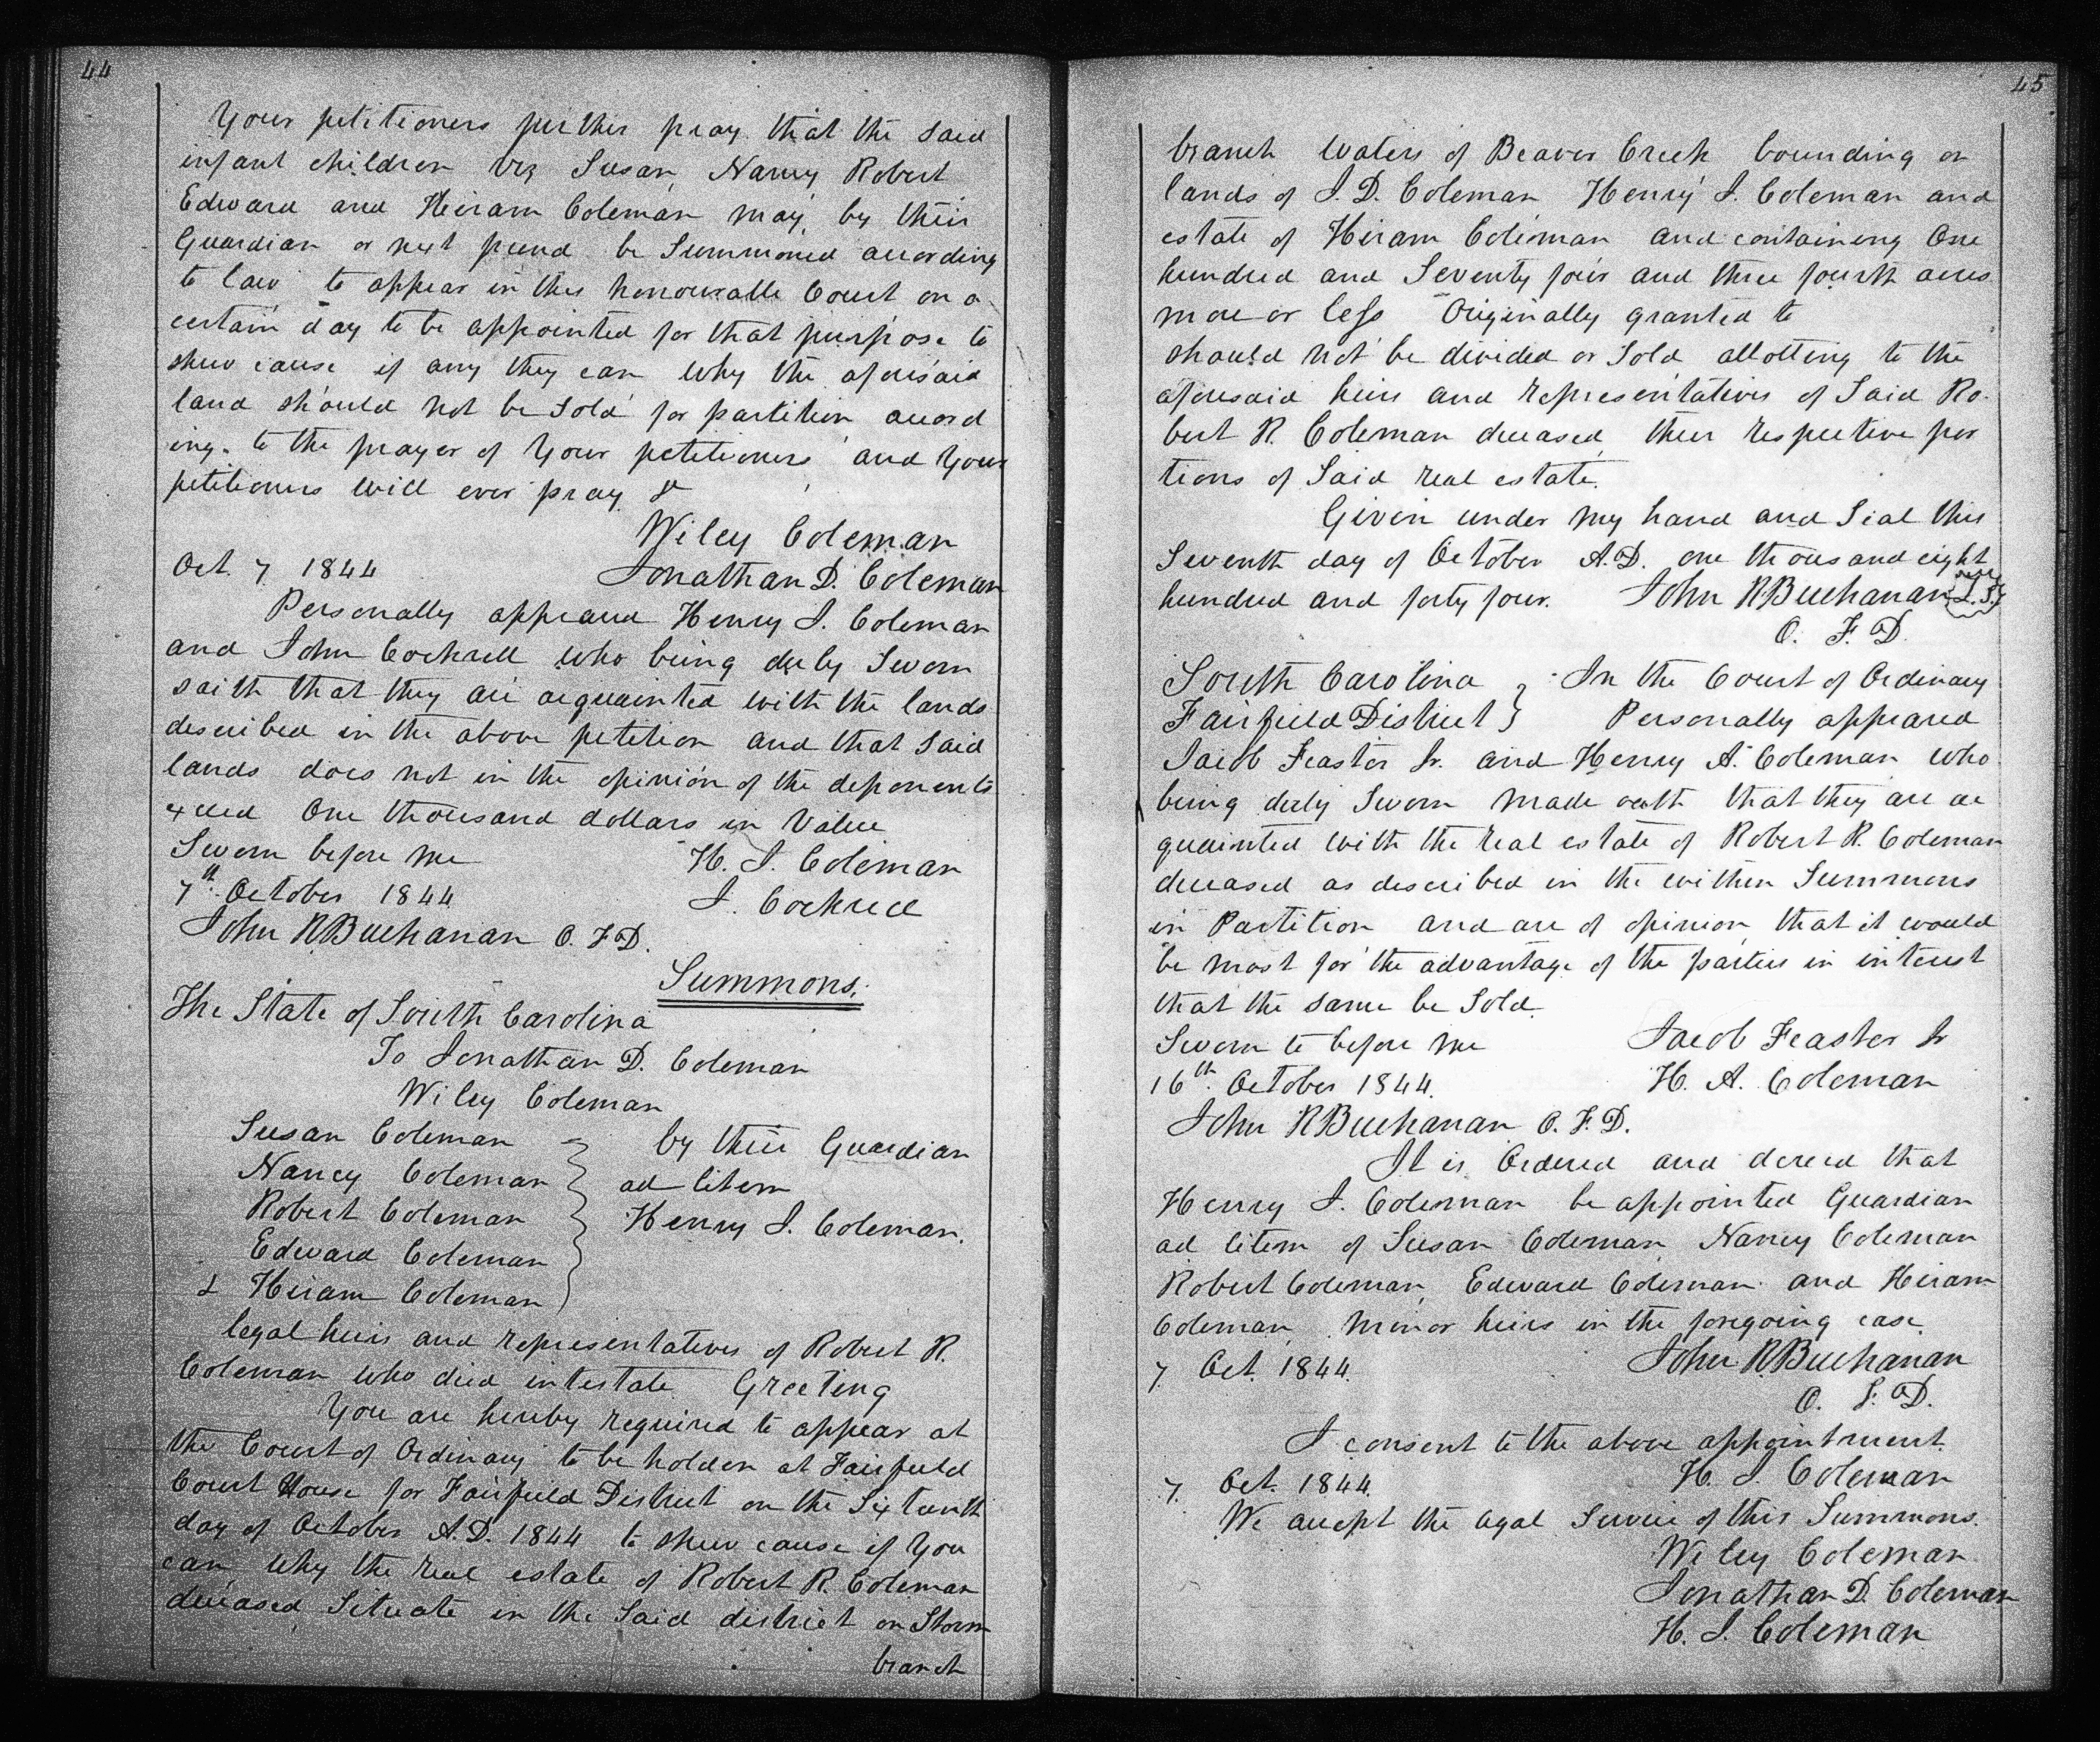 44
Your petitioners further pray that the said
infant children viz Susan, Nancy Robert
Edward and Hiram Coleman may by their
Guardian or next friend be Summoned according
to law to appear in this honourable Court on a
certain day to be appointed for that purpose to
shew cause if any they can why the aforesaid
land should not be Sold for partition accord
ing to the prayer of Your petitioners and Your
petitioners will ever pray &c
Wiley Coleman
Oct. 7 1844 Jonathan D. Coleman
Personally appeared Henry J. Coleman
and John Cockrell who being duly Sworn
saith that they are acquainted with the lands
described in the above petition and that said
lands does not in the opinion of the deponents
exceed One thousand dollars in Value
Sworn before me H. J. Coleman
7th October 1844 J. Cockrell
John R Buchanan O. F. D.
Summons.
The State of South Carolina
To Jonathan D. Coleman
Wiley Coleman
Susan Coleman by their Guardian
Nancy Coleman ad litem
Robert Coleman Henry J. Coleman.
Edward Coleman
& Hiram Coleman
legal heirs and representatives of Robert R.
Coleman who died intestate Greeting
You are hereby required to appear at
the Court of Ordinary to be holden at Fairfield
Court House for Fairfield District on the Sixteenth
day of October A.D. 1844 to shew cause if You
can why the real estate of Robert R. Coleman
deceased Situate in the Said district on Storm
branch
45
branch Waters of Beaver Creek bounding on
lands of J. D. Coleman Henry J. Coleman and
estate of Hiram Coleman and containing One
hundred and Seventy four and three fourth acres
more or less Originally granted to
should not be divided or Sold allotting to the
aforesaid heirs and representatives of Said Ro-
bert R. Coleman deceased their respective por
tions of Said real estate.
Given under my hand and Seal this
Seventh day of October A.D. one thousand eight
hundred and forty four. John R Buchanan L.S.
O. F. D.
South Carolina } In the Court of Ordinary
Fairfield District } Personally appeared
Jacob Feaster Jr. and Henry A. Coleman who
being duly Sworn made oath that they are ac
quainted with the real estate of Robert R. Coleman
deceased as described in the within Summons
in Partition and are of opinion that it would
be most for the advantage of the parties in interest
that the same be Sold.
Sworn to before me Jacob Feaster Jr
16th October 1844. H. A. Coleman
John R Buchanan O. F. D.
It is Ordered and decreed that
Henry J. Coleman be appointed Guardian
ad litem of Susan Coleman Nancy Coleman
Robert Coleman, Edward Coleman and Hiram
Coleman minor heirs in the foregoing case.
7. Oct. 1844. John R. Buchanan
O. F. D.
I consent to the above appointment.
7. Oct. 1844. H. J. Coleman
We accept the legal Service of this Summons.
Wiley Coleman
Jonathan D. Coleman
H. J. Coleman